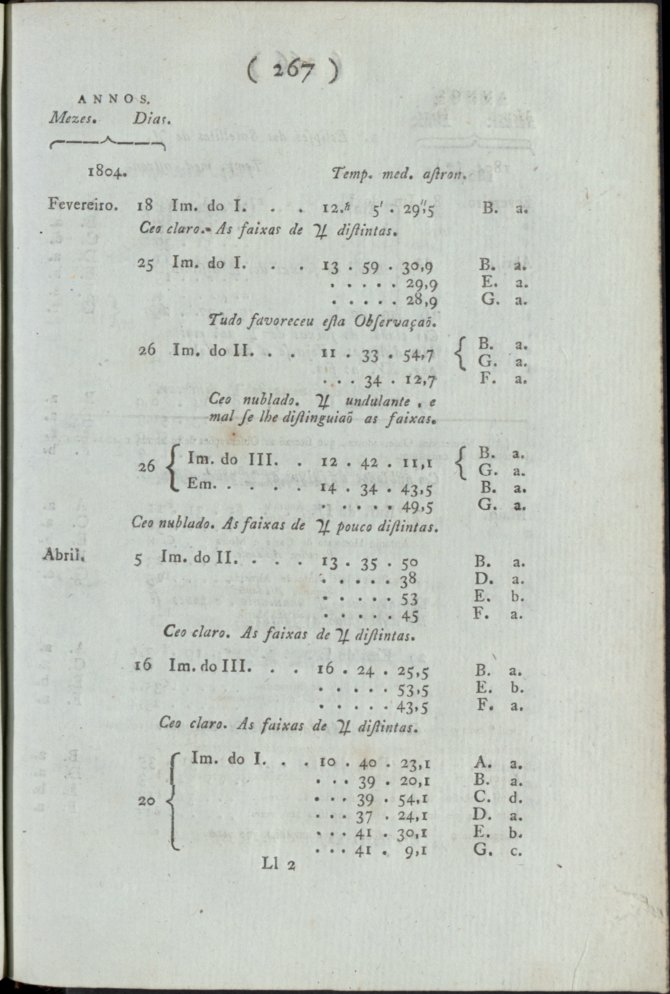 ( 267 )
ANNOS.
Mezes. Dias.
1804. Temp. med. aſtron.
Fevereiro. 18 Im. do I. . . 12.h 5' . 29",5 B. a.
Ceo claro. As faixas de ♃ diſtintas.
25 Im. do I. . . 13 . 59 . 30,9 B. a.
. . . . . 29,9 E. a.
. . . . . 28,9 G. a.
Tudo favoreceu eſta Obſervaçaõ.
26 Im. do II. . . 11 . 33 . 54,7 { B. a.
G. a.
. . . 34 . 12,7 F. a.
Ceo nublado. ♃ undulante , e
mal ſe lhe diſtinguiaõ as faixas.
26 { Im. do III. . 12 . 42 . 11,1 { B. a.
G. a.
Em. . . . . 14 . 34 . 43,5 B. a.
. . . . . 49,5 G. a.
Ceo nublado. As faixas de ♃ pouco diſtintas.
Abril. 5 Im. do II. . . . 13 . 35 . 50 B. a.
. . . . . 38 D. a.
. . . . . 53 E. b.
. . . . . 45 F. a.
Ceo claro. As faixas de ♃ diſtintas.
16 Im. do III. . . 16 . 24 . 25,5 B. a.
. . . . . 53,5 E. b.
. . . . . 43,5 F. a.
Ceo claro. As faixas de ♃ diſtintas.
20 { Im. do I. . . 10 . 40 . 23,1 A. a.
. . . 39 . 20,1 B. a.
. . . 39 . 54,1 C. d.
. . . 37 . 24,1 D. a.
. . . 41 . 30,1 E. b.
. . . 41 . 9,1 G. c.
Ll 2